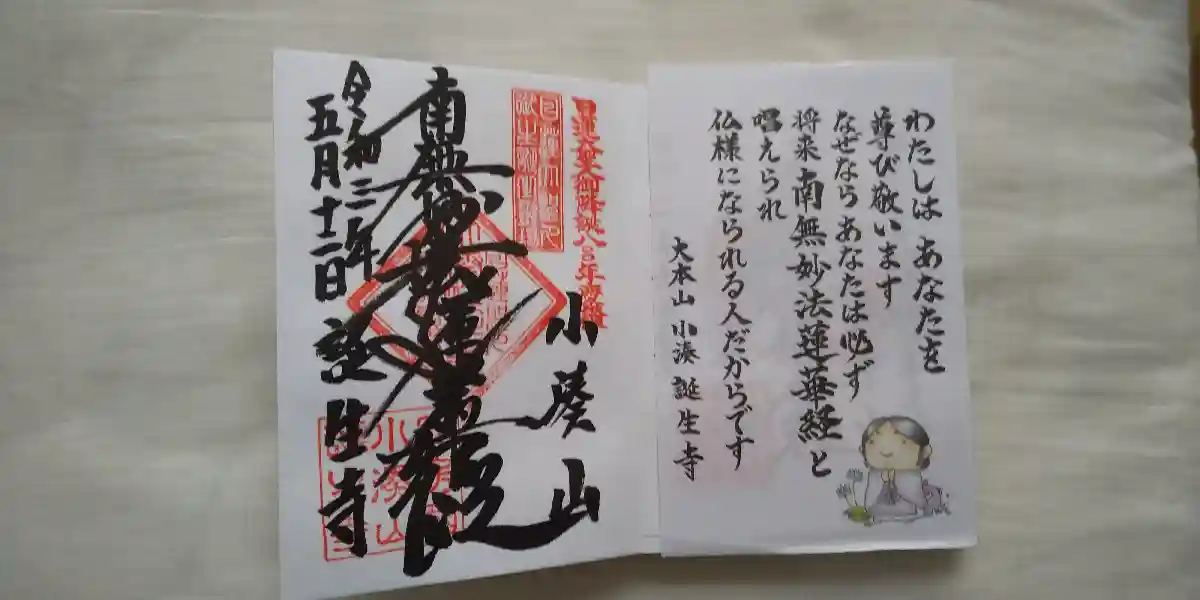 わたしは あなたを
尊び敬います
なぜなら あなたは必ず
将来 南無妙法蓮華経と
唱えられ
仏様になられる人だからです
大本山 小湊 誕生寺
日蓮大聖人御降誕八〇〇年
小湊山
南無妙法蓮華経
令和三年
五月十二日 誕生寺